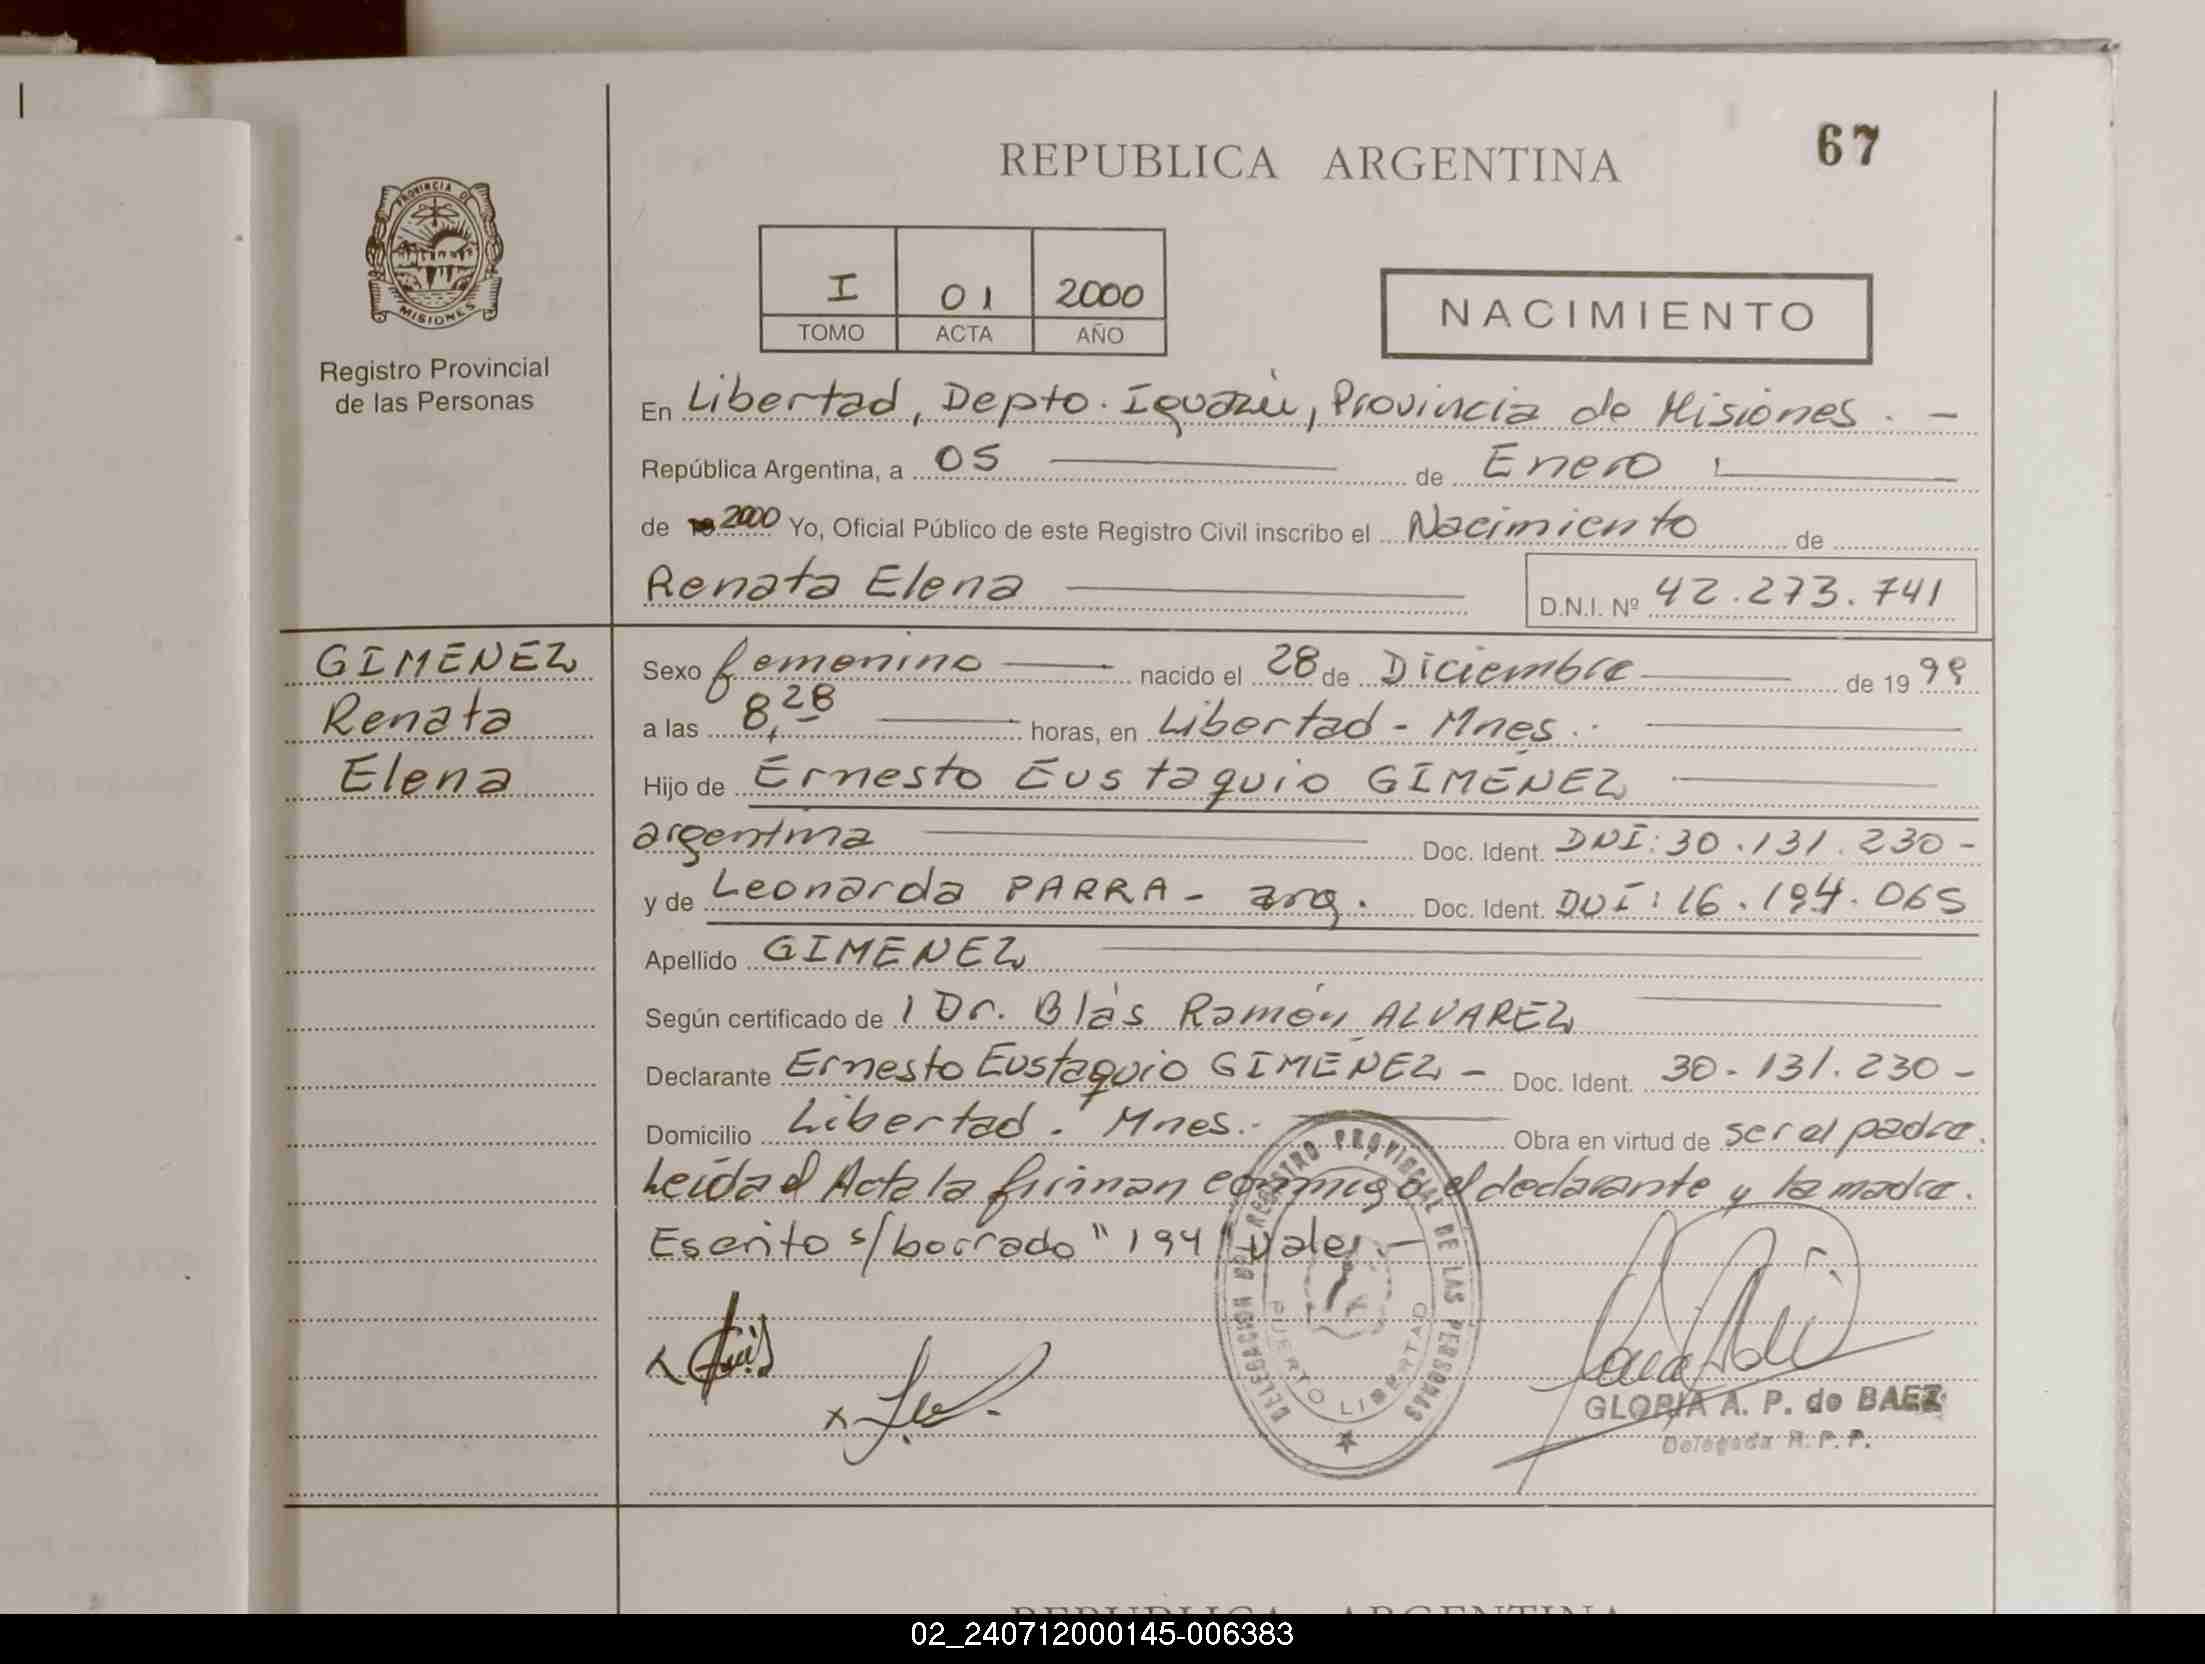 REPUBLICA ARGENTINA
67
PROVINCIA DE
MISIONES
Registro Provincial
de las Personas
I 01 2000
TOMO ACTA AÑO
NACIMIENTO
En Libertad, Depto. Iguazú, Provincia de Misiones. -
República Argentina, a 05 de Enero
de 2000 Yo, Oficial Público de este Registro Civil inscribo el Nacimiento de
Renata Elena D.N.I. Nº 42.273.741
GIMENEZ
Renata
Elena
Sexo femenino nacido el 28 de Diciembre de 19 99
a las 8,28 horas, en Libertad - Mnes.
Hijo de Ernesto Eustaquio GIMÉNEZ
argentina Doc. Ident. DNI: 30.131.230-
y de Leonarda PARRA - arg. Doc. Ident. DNI: 16.194.065
Apellido GIMENEZ
Según certificado de 1 Dr. Blás Ramón ALVAREZ
Declarante Ernesto Eustaquio GIMENEZ - Doc. Ident. 30-131.230-
Domicilio Libertad. Mnes. Obra en virtud de ser el padre.
Leída el Acta la firman conmigo el declarante y la madre.
Escrito s/borrado "194" Vale. -
DELEGACION DEL REGISTRO PROVINCIAL DE LAS PERSONAS
PUERTO LIBERTAD
GLORIA A. P. de BAEZ
Delegada R. P. P.
REPUBLICA ARGENTINA
02_240712000145-006383